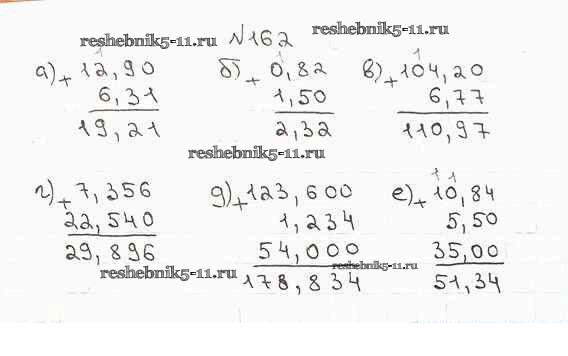 reshebnik5-11.ru №162 reshebnik5-11.ru
1 1 1
а) + 12,90 б) + 0,82 в) + 104,20
6,31 1,50 6,77
19,21 2,32 110,97
reshebnik5-11.ru
1 1
г) + 7,356 д) + 123,600 е) + 10,84
22,540 1,234 5,50
54,000 35,00
29,896 reshebnik5-11.ru
reshebnik5-11.ru 178,834 51,34